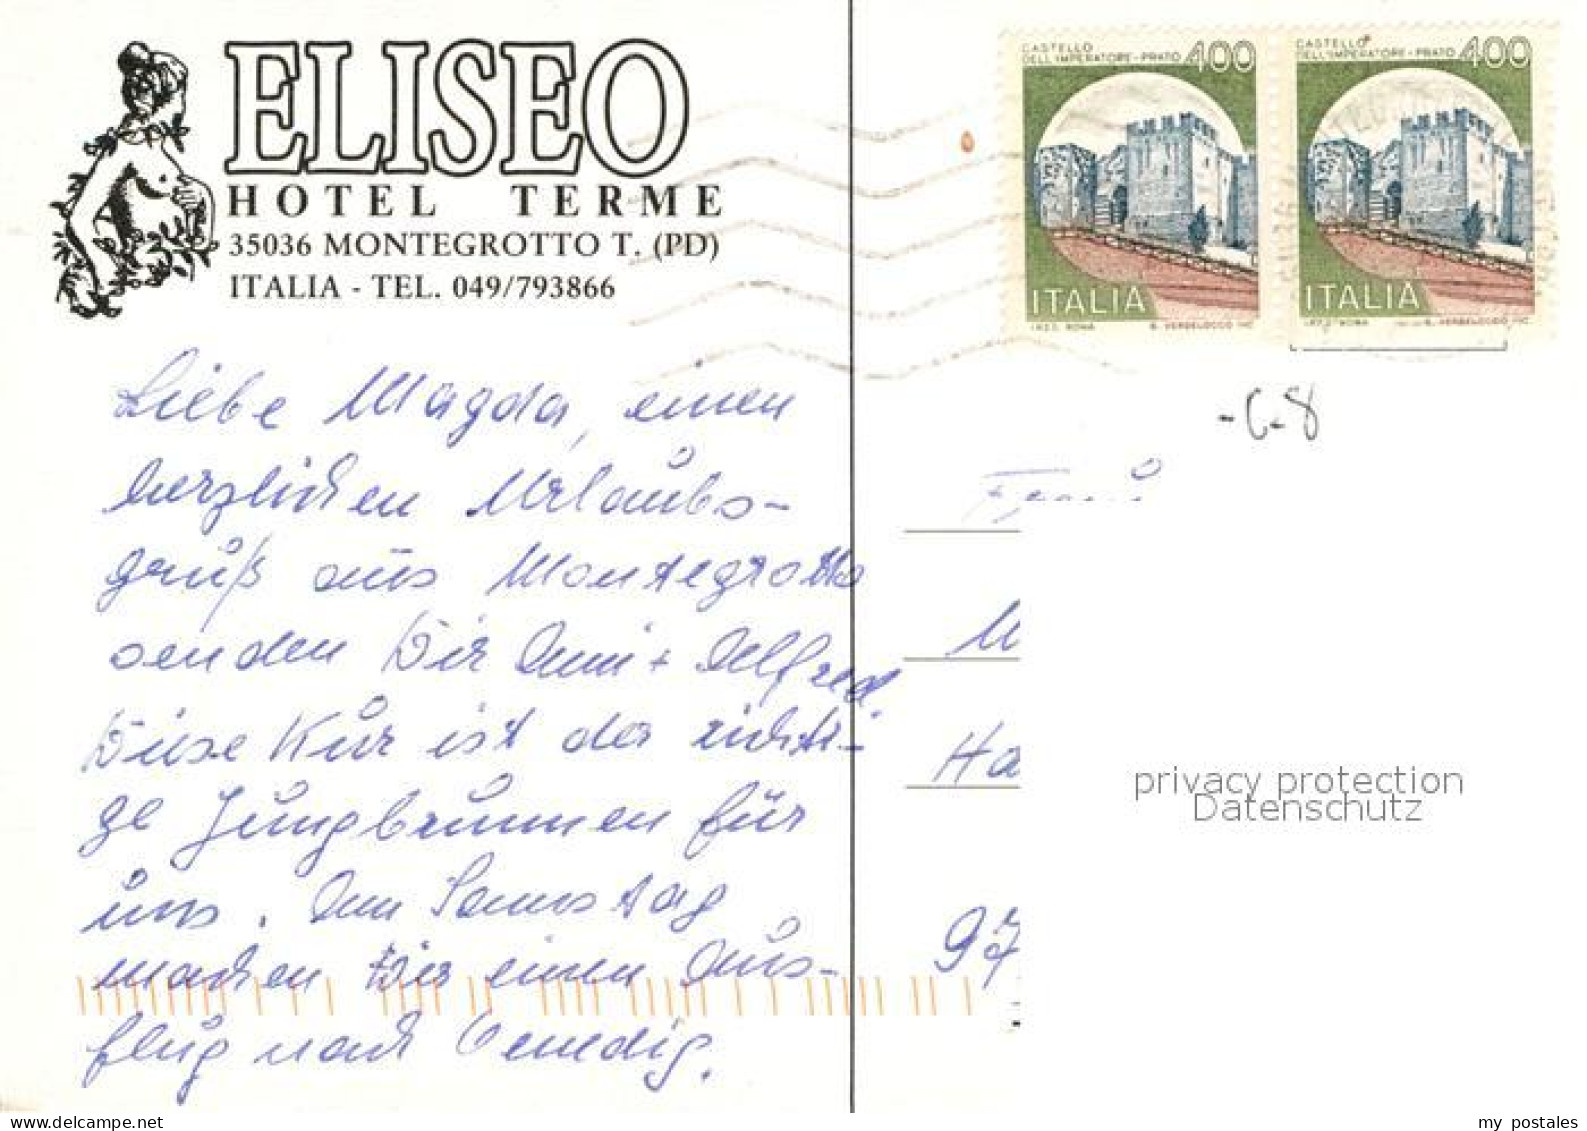 ELISEO
HOTEL TERME
35036 MONTEGROTTO T. (PD)
ITALIA - TEL. 049/793866
CASTELLO
DELL'IMPERATORE - PRATO 400
ITALIA
I.P.Z.S. ROMA E. VERDELOCCO INC.
CASTELLO
DELL'IMPERATORE - PRATO 400
ITALIA
I.P.Z.S. ROMA E. VERDELOCCO INC.
-6-8
Liebe Magda, einen
herzlichen Urlaubs-
gruß aus Montegrotto
senden Dir Anni + Alfred.
Diese Kur ist der richti-
ge Jungbrunnen für
uns. Am Samstag
machen wir einen Aus-
flug nach Venedig.
Frau
Ha
97
privacy protection
Datenschutz
my postales